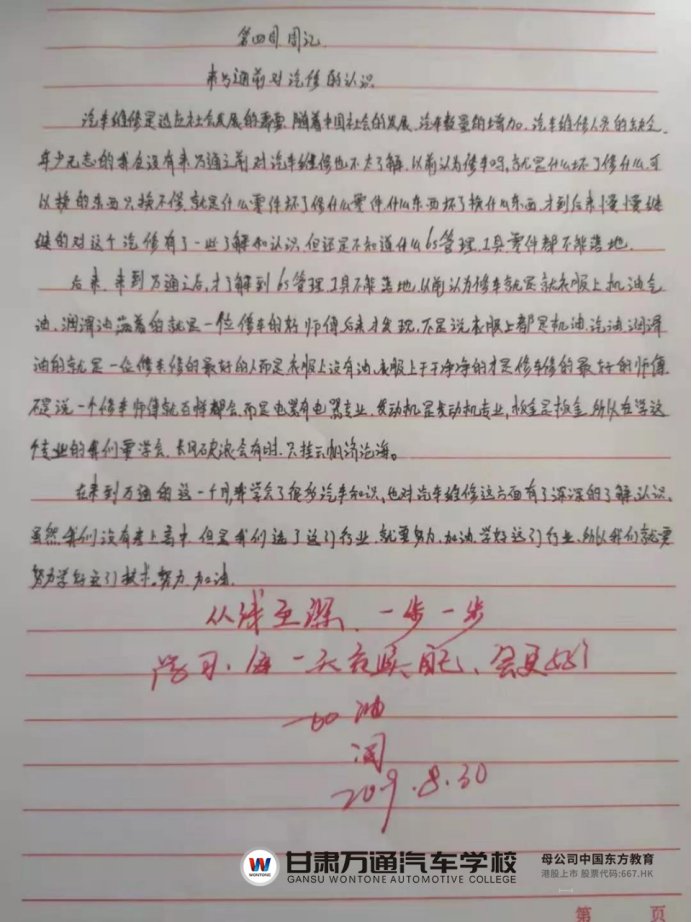 第四周周记
来万通前对汽修的认识
汽车维修是适应社会发展的需要,随着中国社会的发展,汽车数量的增加,汽车维修人员的缺乏,
年少无志的我在没有来万通之前对汽车维修也不太了解,以前认为修车吗,就是什么坏了修什么,可
以换的东西只换不修,就是什么零件坏了修什么零件,什么东西坏了换什么东西,才到后来慢慢继
继的对这个汽修有了一些了解和认识,但还是不知道什么6s管理,工具零件都不能落地.
后来,来到万通之后,才了解到6s管理,工具不能落地,以前认为修车就是就衣服上机油汽
油,润滑油 的就是一位修车的好师傅后来才发现,不是说衣服上都是机油,汽油,润滑
油的就是一位修车修的最好的人而是衣服上没有油,衣服上干干净净的才是修车修的最好的师傅
不是说一个修车师傅就百样都会,而是电器有电器专业,发动机是发动机专业,钣金是钣金,所以在学这
个专业的我们要学会,长风破浪会有时,只挂云帆济沧海。
在来到万通的这一个月,我学会了很多汽车知识,也对汽车维修这方面有了深深的了解,认识,
虽然我们没有考上高中,但是我们选了这门行业,就要努力,加油,学好这门行业,所以我们就要
努力学好这门技术。努力,加油.
从浅至深、一步一步
学习,每一天 自己、会更好的
加油
阅
2019.8.30
WONTONE
甘肃万通汽车学校
GANSU WONTONE AUTOMOTIVE COLLEGE
母公司中国东方教育
港股上市 股票代码:667.HK
第 页